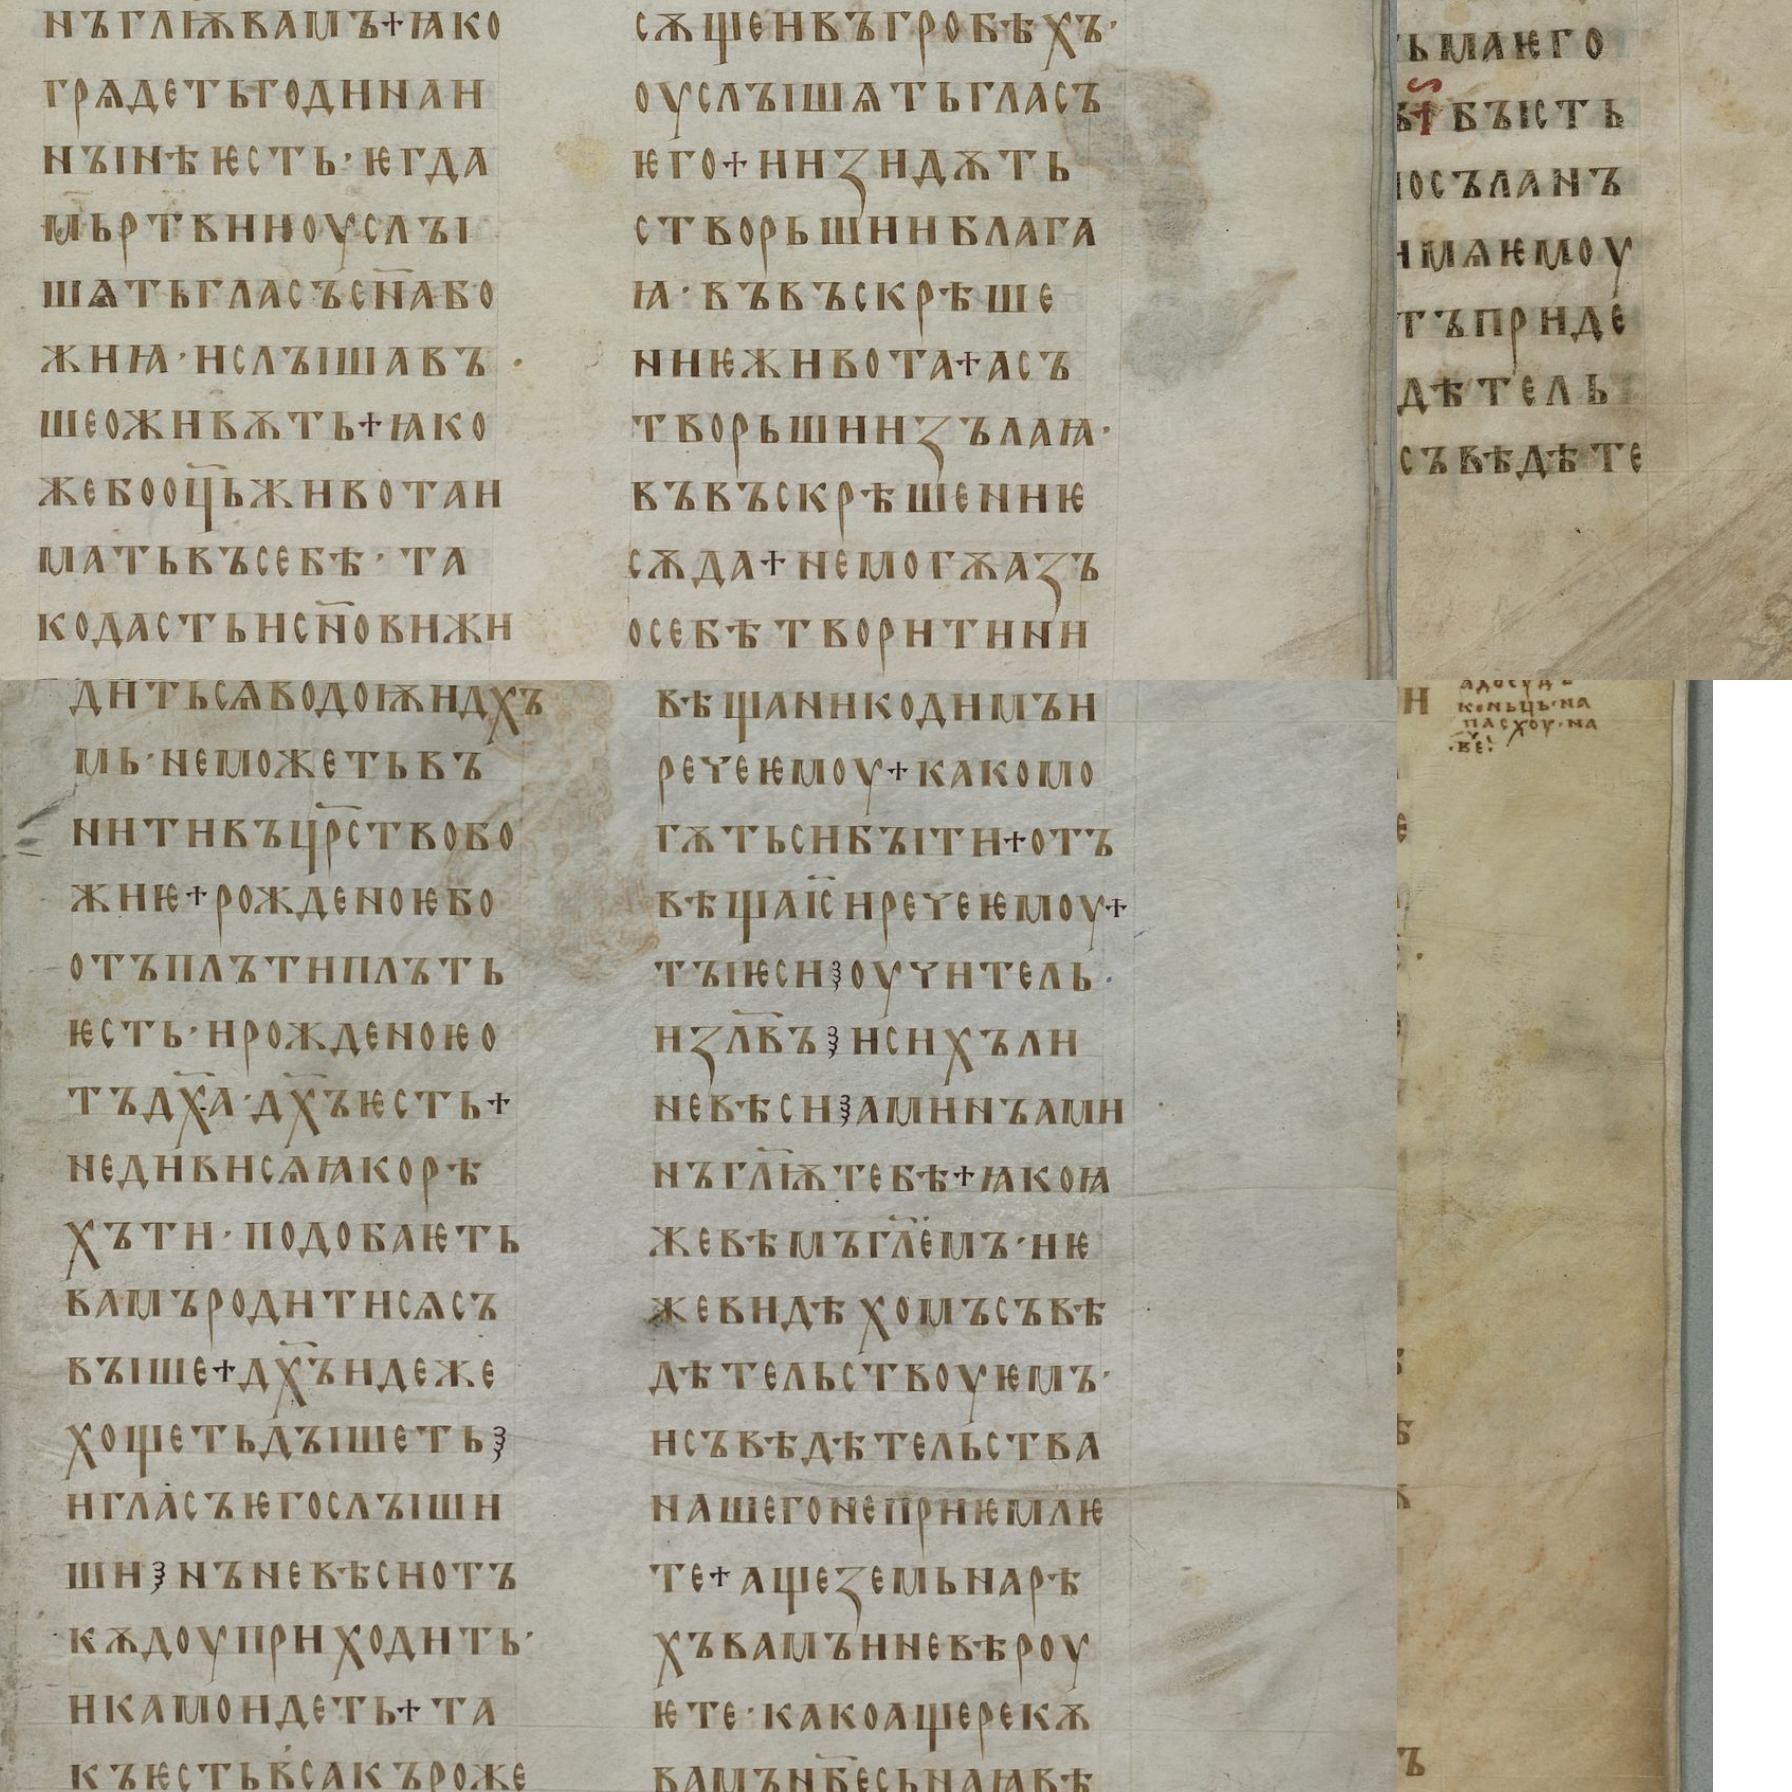 нъглѭвамъ+ꙗко
грѧдетьгодинаи
нꙑнѣѥсть·ѥгда
мьртвииоуслꙑ
шѧтьгласъсн҃або
жиꙗ·ислꙑшавъ
шеоживѫть+ꙗко
жебооц҃ьживотаи
матьвъсебѣ·та
кодастьисн҃овижи
сѫщеивъгробѣхъ·
оуслꙑшѧтьгласъ
ѥго+ииꙁидѫть
створьшииблага
ꙗ·въвъскрѣше
ниѥживота+асъ
творьшииꙁълаꙗ·
въвъскрѣшениѥ
сѫда+немогѫаꙁъ
осебѣтворитини
ьмаѥго
бꙑсть
осъланъ
имѧѥмоу
тъприде
дѣтель
съвѣдѣте
дитьсѧводоѭидх҃ъ
мь·неможетьвъ
нитивъцр҃ствобо
жиѥ+рожденоѥбо
отъплътиплъть
ѥсть·ирожденоѥо
тъдх҃а·дх҃ъѥсть+
недивисѧꙗкорѣ
хъти·подобаѥть
вамъродитисѧсъ
вꙑше+дх҃ъидеже
хощетьдꙑшеть⁏
игласъѥгослꙑши
ши⁏нъневѣсиотъ
кѫдоуприходить·
икамоидеть+та
къѥстьвсакъроже
вѣщаникодимъи
речеѥмоу+какомо
гѫтьсибꙑти+отъ
вѣщаіс҃иречеѥмоу+
тꙑѥси⁏оучитель·
иꙁл҃въ⁏исихъли
невѣси⁏аминъами
нъгл҃ѭтебѣ+ꙗкоꙗ
жевѣмъгл҃емъ·иѥ
жевидѣхомъсъвѣ
дѣтельствоуѥмъ·
исъвѣдѣтельства
нашегонеприѥмлѥ
те+ащеꙁемьнарѣ
хъвамъиневѣроу
ѥте·какоащерекѫ
вамън҃бесьнаꙗвѣ
коньць·на
пасхоу·на